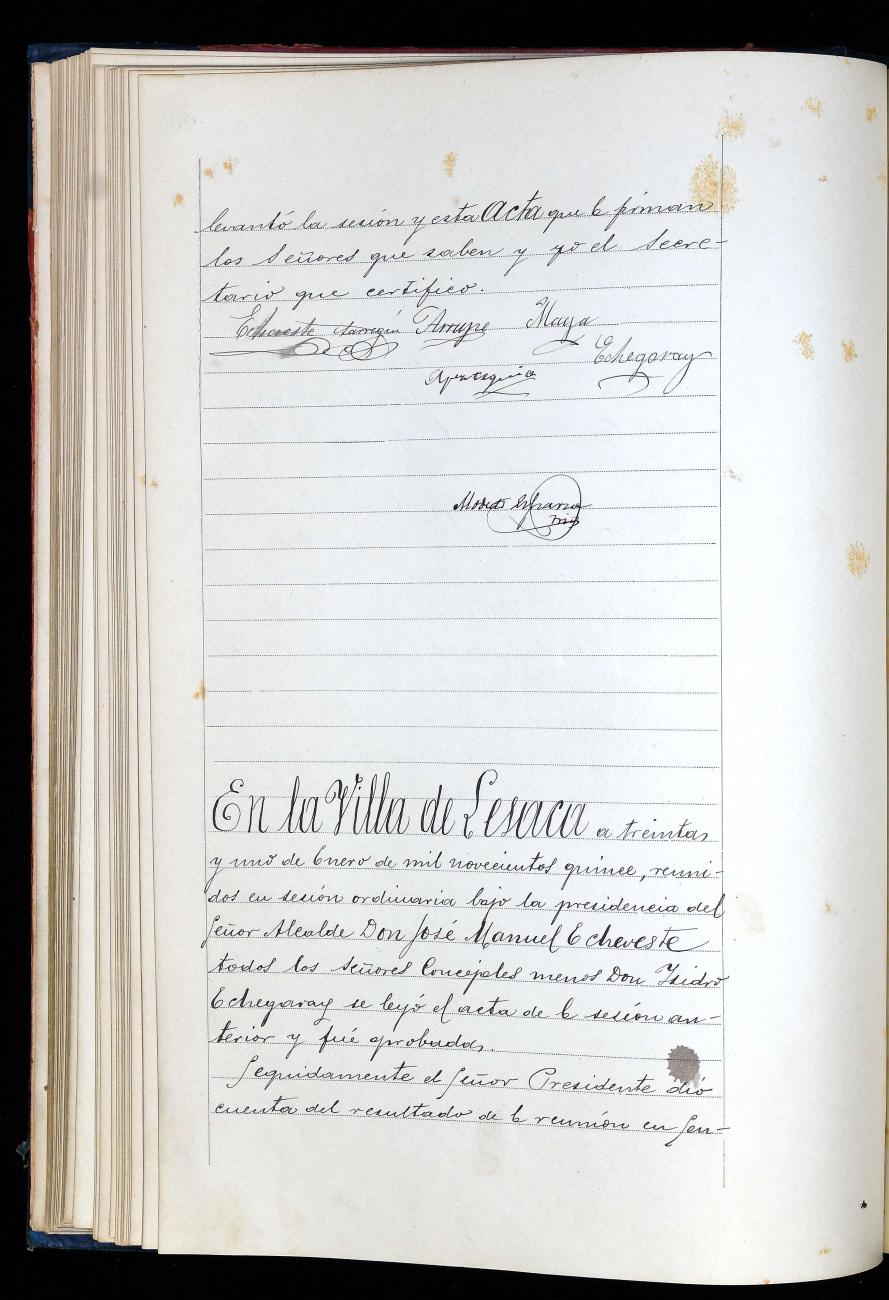 levantó la sesión y esta Acta que la firman
los Señores que saben y yo el Secre-
tario que certifico.
Echeveste Arrupe Maya
Echegaray
Apezteguia
Modesto Esparza
En la Villa de Lesaca a treinta
y uno de Enero de mil novecientos quince, reuni-
dos en sesión ordinaria bajo la presidencia del
Señor Alcalde Don José Manuel Echeveste
todos los Señores Concejales menos Don Isidro
Echegaray se leyó el acta de la sesión an-
terior y fué aprobada.
Seguidamente el Señor Presidente dió
cuenta del resultado de la reunión en San-